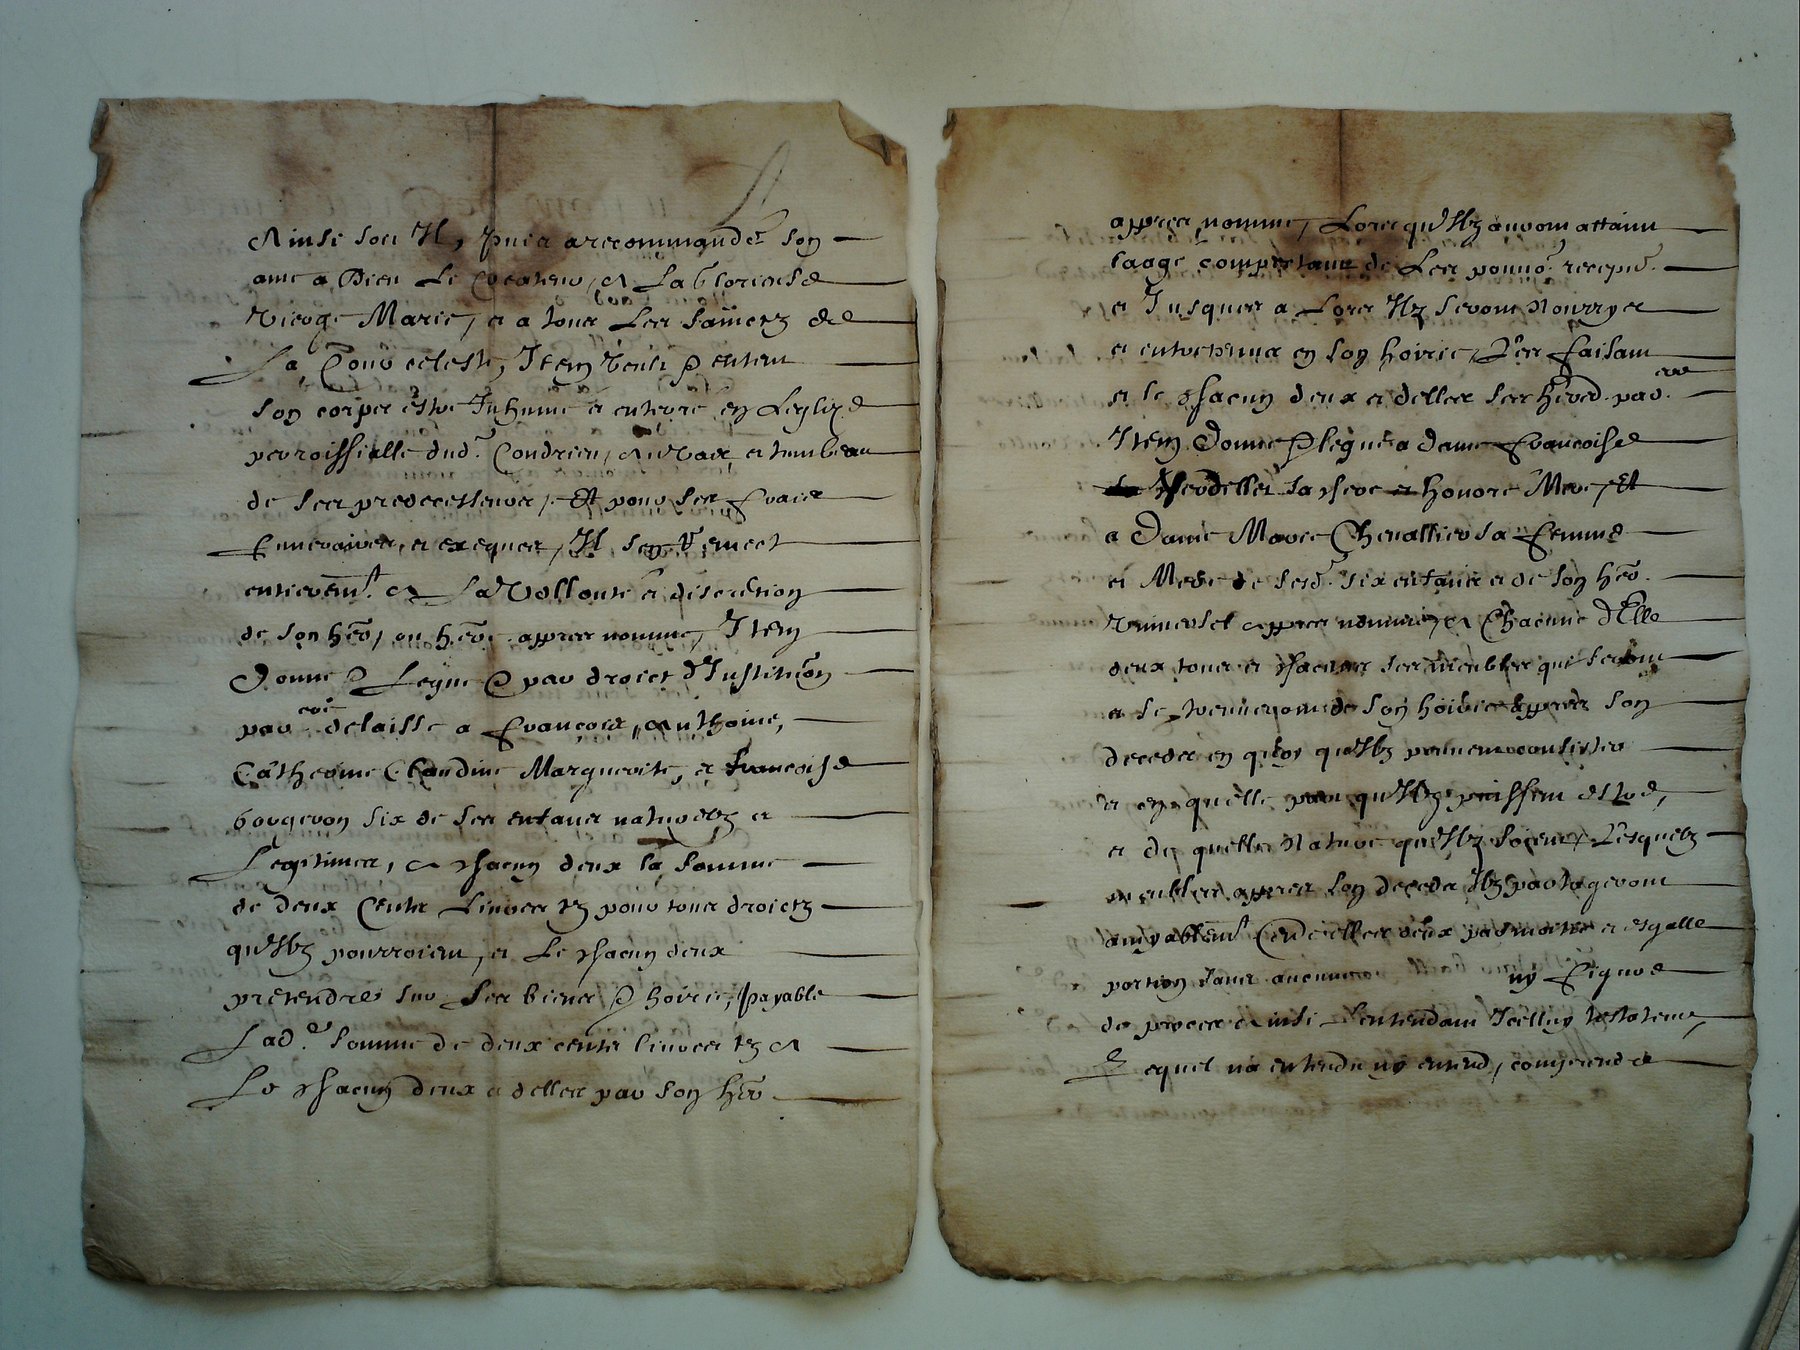 Ainsi soit Il, Puis a recommandé son
ame a Dieu Le Createur, A La Glorieuse
Vierge Marie, et a tous Les Sainctz de
La Cour celeste, Item Veult & entent
son corps estre Inhumé et enterré en Leglize
parroissialle dud. Condrieu, au Vas et tumbeau
de ses predecesseurs, Et pour ses Frais
Funeraires, et exeques, Il sen remect
entierem.t A La Vollonté et discretion
de son her, ou her. appres nommé, Item
Donne & Legue & par droict d'Institution
par delaisse a François, Anthoine,
Catherine Claudine Marguerite, et Francoise
six de ses enfans naturelz et
Legitimes, A chacun deux la somme
de deux Cents Livres tz pour tous droictz
qu'Ilz pourroient, et Le chacun deux
pretendre sur Ses biens & hoirie, payable
Lad.e somme de deux cents livres tz A
Le chacun deux et delles par son her.
appres nommé, Lors qu'Ilz auront attaint
laage competant de Les pouvo.r recepv.
et Jusques a Lors Ilz seront Nourrys
et entretenus en son hoirie, Les faisant
et le chacun deux et delles ses hered. par.
Item Donne & legue a dame Francoise
sa chere et honoré Mere, Et
a Dame Marie Chevallier sa Femme
et Mere de sesd. six enfans et de son her.
Universel appres nommé, A Chacune d'Elle
deux tous et chacuns ses meubles qui seront
et se treuveront de son hoirie appres son
deceds en quoy qu'Ilz puissent consister
et en quelle part qu'Ilz puissent estre,
et de quelle Nature qu'Ilz soient, Lesquelz
meubles appres son deceds Ilz partageront
amyablem.t Entre elles deux par moitié et esgalle
portion sans aucune ny Figure
de proces Ainsi Lentendant Icelluy testateur,
Lequel na entendu ny entend, comprendre